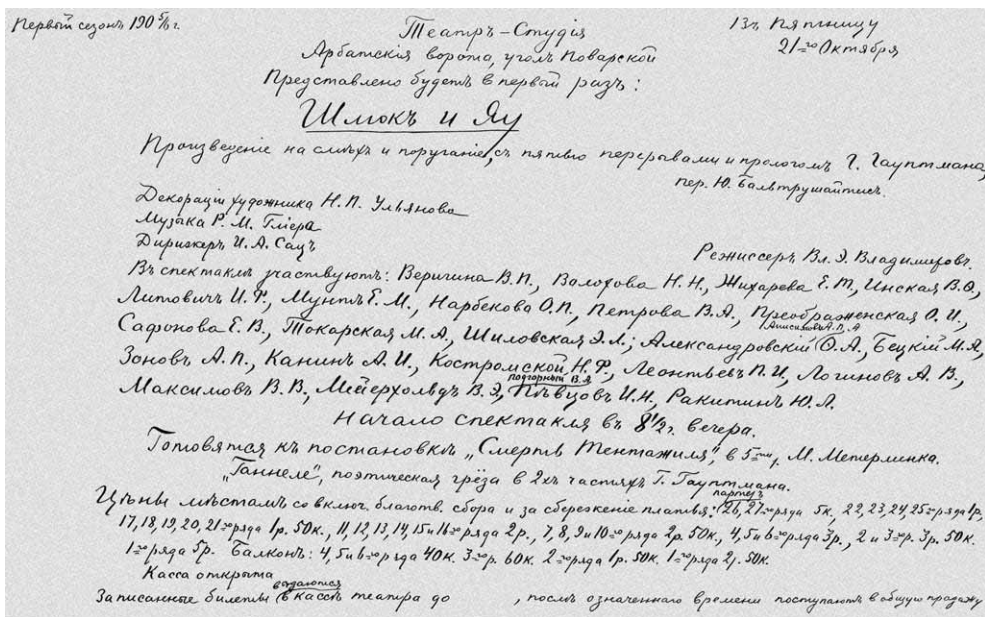 Первый сезонъ 190 5/6 г.
Театръ-Студія
Въ Пятницу
21=го Октября
Арбатскія ворота, уголъ Поварской
Представлено будетъ в первый разъ:
Шлюкъ и Яу
Произведеніе на смѣхъ и поруганіе, съ пятью перерывами и прологомъ Г. Гауптмана,
пер. Ю. Балтрушайтисъ.
Декораціи художника Н. П. Ульянова
Музыка Р. М. Гліера
Дирижеръ И. А. Сацъ
Режиссеръ Вл. Э. Владиміровъ.
Въ спектаклѣ участвуютъ: Веригина В.П., Волохова Н.Н., Жихарева Е.Т., Инская В.О.,
Литовичъ И.Ф., Мунтъ Е.М., Нарбекова О.П., Петрова В.А., Преображенская О.И.,
Сафонова Е.В., Токарская М.А., Шиловская Э.Л.; Александровскій О.А., Бецкій М.А,
Зоновъ А.П., Канинъ А.И., Костромской Н.Ф., Леонтьевъ П.И, Логиновъ А.В.,
подгорный В.А
Максимовъ В.В., Мейерхольдъ В.Э, Пѣвцовъ И.Н., Ракитинъ Ю.Л.
Начало спектакля въ 8 1/2 г. вечера.
Готовятся къ постановкѣ „Смерть Тентажиля", в 5=ти, М. Метерлинка.
„Ганнеле", поэтическая грёза в 2хъ частяхъ Г. Гауптмана.
партеръ
Цѣны мѣстамъ со включ. благотв. сбора и за сбереженіе платья: 26, 27=го ряда 5к., 22, 23, 24, 25=го ряда 1р.,
17, 18, 19, 20, 21=го ряда 1р. 50к., 11, 12, 13, 14, 15 и 16=го ряда 2р., 7, 8, 9 и 10=го ряда 2р. 50к., 4, 5 и 6=го ряда 3р., 2 и 3=го р. 3р. 50к.
1=го ряда 5р. Балконъ: 4, 5 и 6=го ряда 40к. 3=го р. 60к. 2=го ряда 1р. 50к. 1=го ряда 2р. 50к.
Касса открыта
выдаются
Записанные билеты в кассѣ театра до , послѣ означеннаго времени поступаютъ в общую продажу